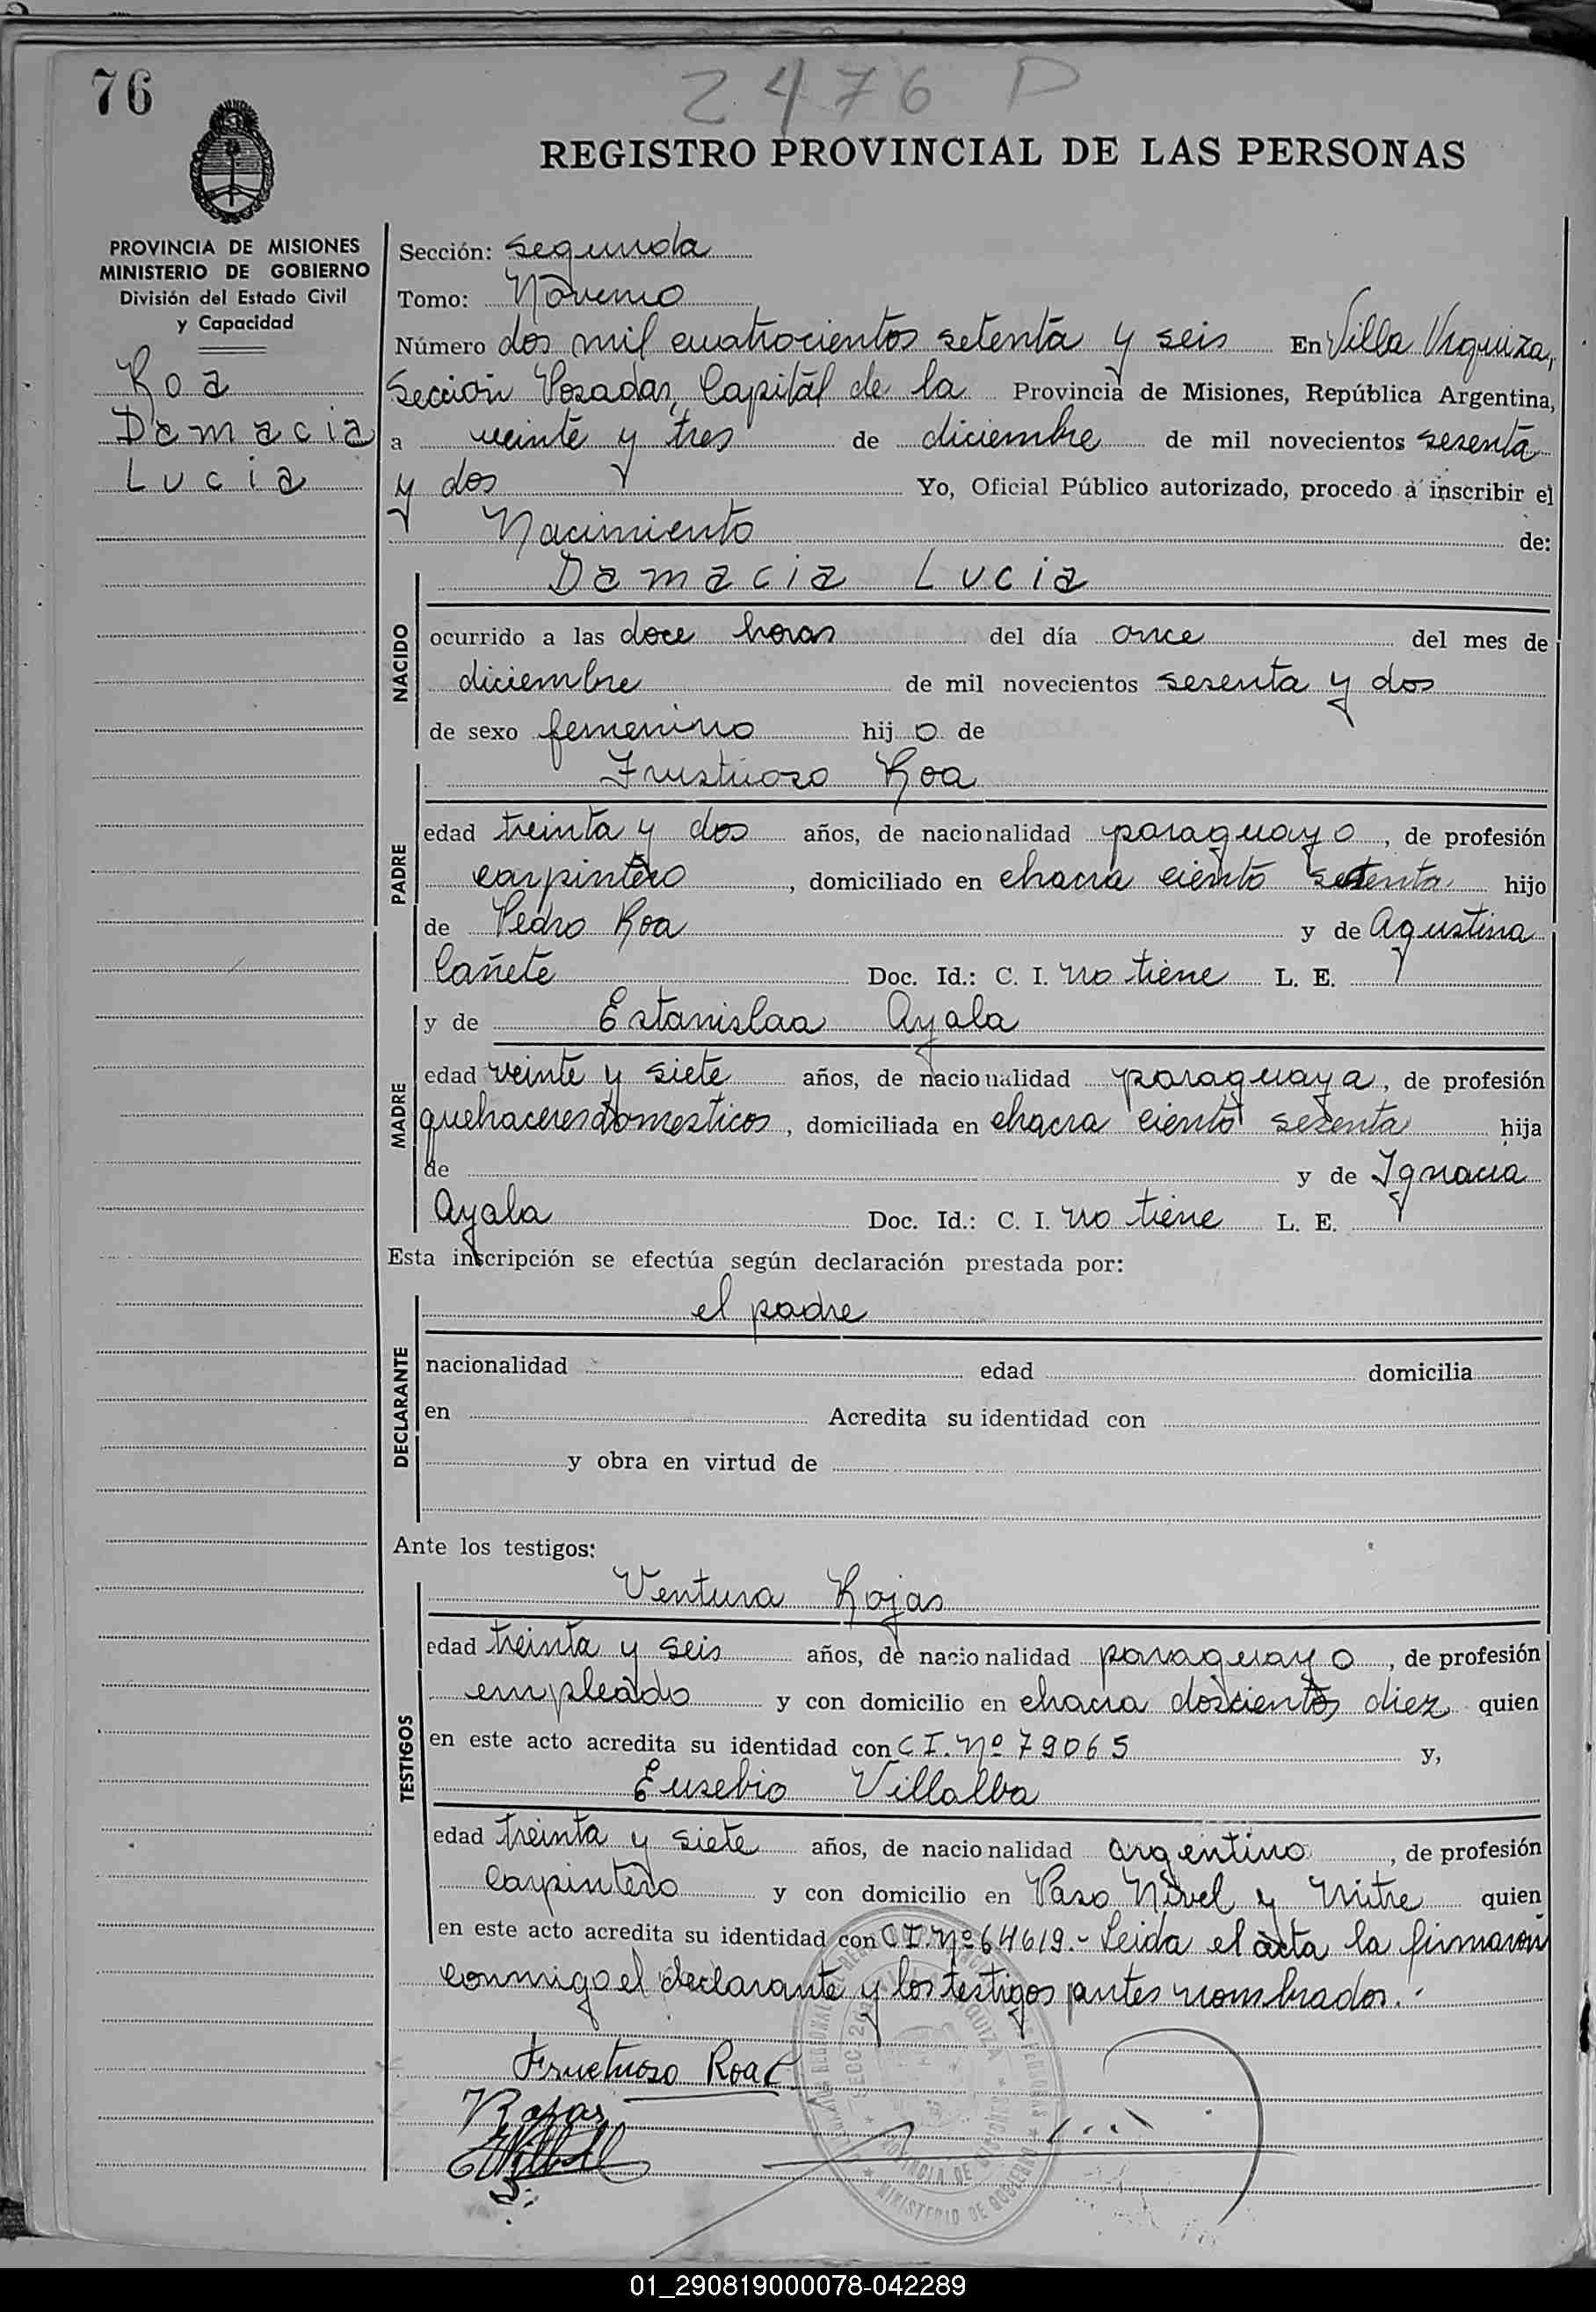 2476 D
76
REGISTRO PROVINCIAL DE LAS PERSONAS
PROVINCIA DE MISIONES
MINISTERIO DE GOBIERNO
División del Estado Civil
y Capacidad
Roa
Damacia
Lucia
Sección: segunda
Tomo: Noveno
Número dos mil cuatrocientos setenta y seis En Villa Urquiza,
Sección Posadas, Capital de la Provincia de Misiones, República Argentina,
a veinte y tres de diciembre de mil novecientos sesenta
y dos Yo, Oficial Público autorizado, procedo a inscribir el
Nacimiento de:
Damacia Lucia
NACIDO
ocurrido a las doce horas del día once del mes de
diciembre de mil novecientos sesenta y dos
de sexo femenino hij o de
Frustuoso Roa
PADRE
edad treinta y dos años, de nacionalidad paraguayo, de profesión
carpintero, domiciliado en chacra ciento hijo
de Pedro Roa y de Agustina
Cañete Doc. Id.: C. I. no tiene L. E.
y de Estanislaa Ayala
MADRE
edad veinte y siete años, de nacionalidad paraguaya, de profesión
quehaceres domesticos, domiciliada en chacra ciento sesenta hija
de y de Ignacia
Ayala Doc. Id.: C. I. no tiene L. E.
Esta inscripción se efectúa según declaración prestada por:
el padre
DECLARANTE
nacionalidad edad domicilia
en Acredita su identidad con
y obra en virtud de
Ante los testigos:
Ventura Rojas
TESTIGOS
edad treinta y seis años, de nacionalidad paraguayo, de profesión
empleado y con domicilio en chacra doscientos diez quien
en este acto acredita su identidad con C I. Nº 79065 y,
Eusebio Villalba
edad treinta y siete años, de nacionalidad argentino, de profesión
Carpintero y con domicilio en Paso Nivel y Mitre quien
en este acto acredita su identidad con C I. Nº 64619.- Leida el acta la firmaron
conmigo el declarante y los testigos antes nombrados.-
Fructuoso Roa C
Rojas
MINISTERIO DE GOBIERNO
PROVINCIA DE MISIONES
01_290819000078-042289